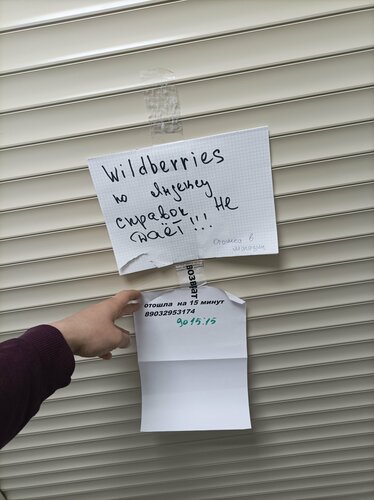 Wildberries
по Яндексу
справок не
даёт!!!
отошла в
магазин
возврат
отошла на 15 минут
89032953174
до 15:15